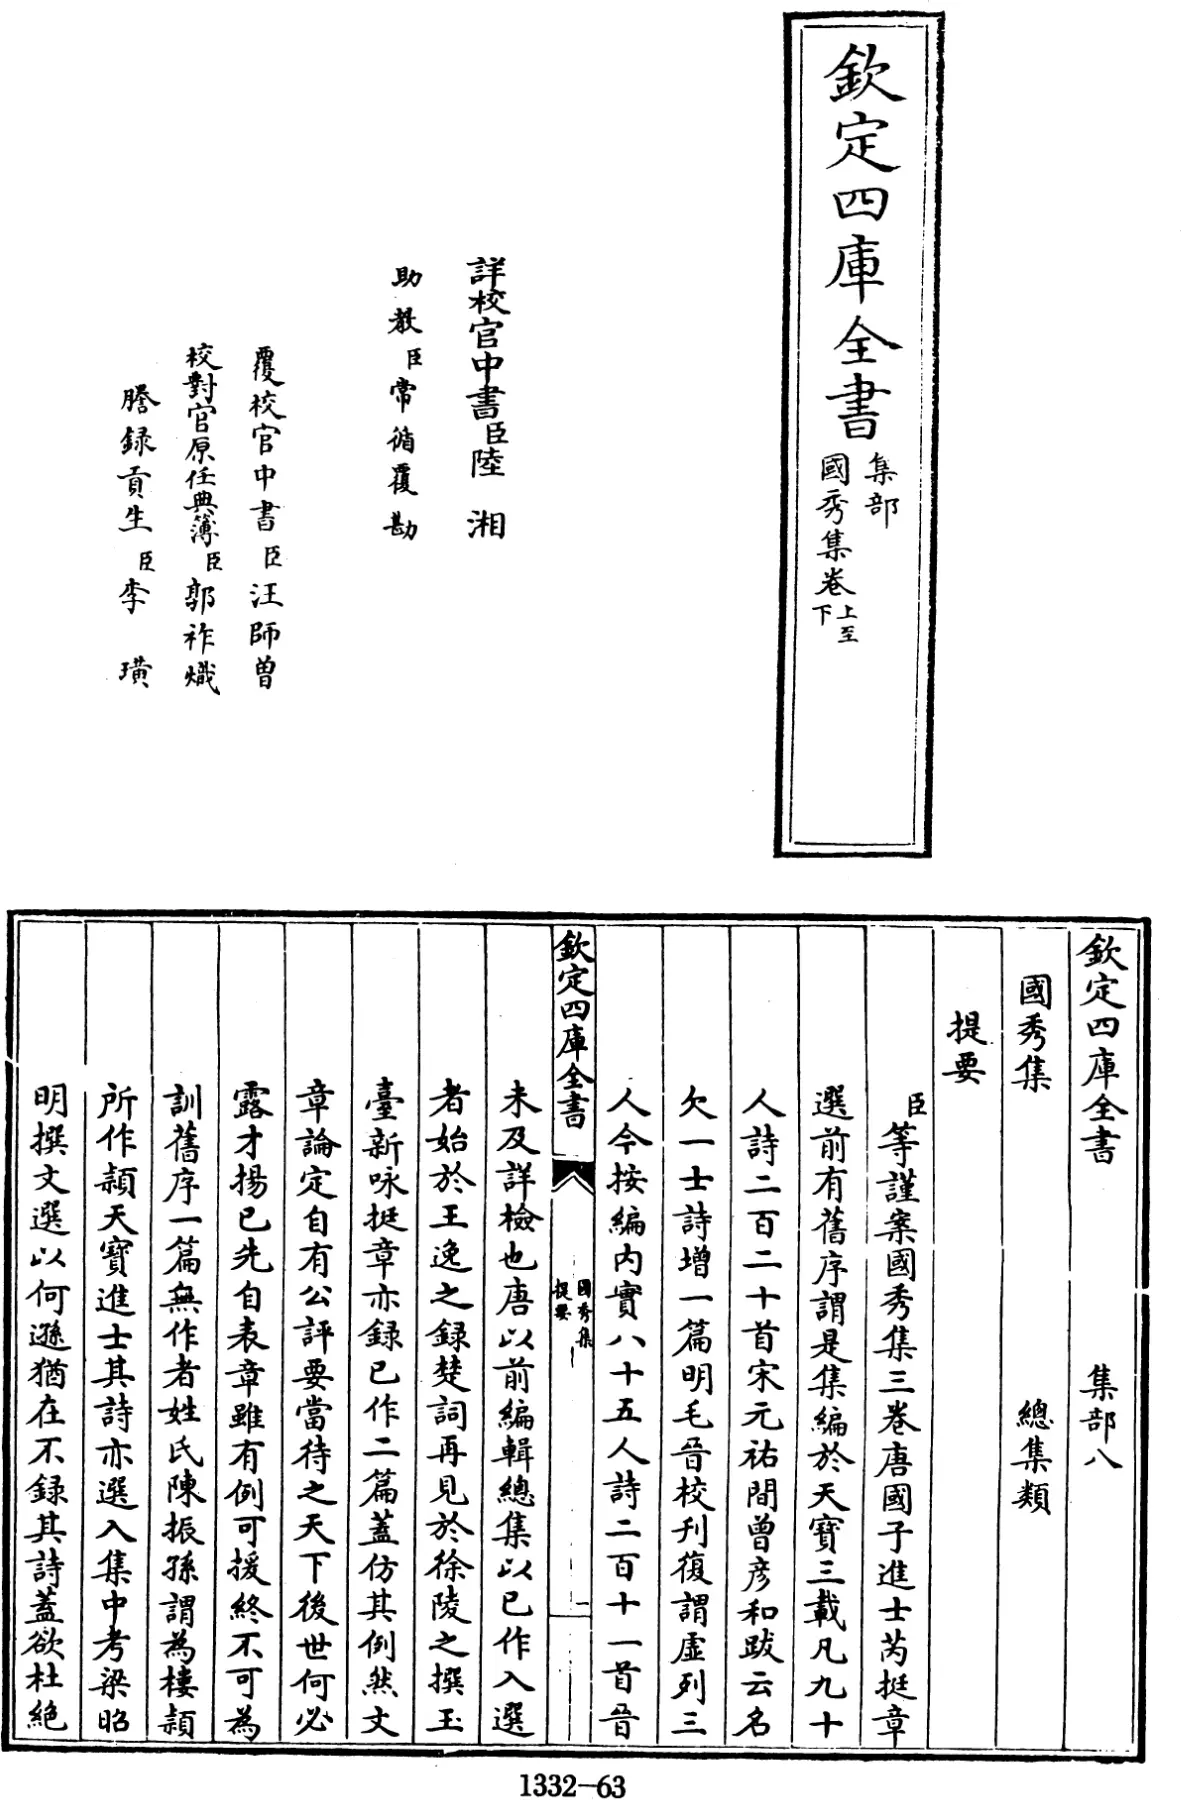 欽定四庫全書
集部
國秀集卷上至下
詳校官中書臣陸湘
助教臣常循覆勘
覆校官中書臣汪師曾
校對官原任典簿臣郭祚熾
謄録貢生臣李璜
欽定四庫全書 集部八
國秀集 總集類
提要
臣等謹案國秀集三卷唐國子進士芮挺章
選前有舊序謂是集編於天寶三載凡九十
人詩二百二十首宋元祐間曾彦和跋云名
欠一士詩增一篇明毛晉校刋復謂虛列三
人今按編内實八十五人詩二百十一首晉
欽定四庫全書
國秀集
提要
一
未及詳檢也唐以前編輯總集以已作入選
者始於王逸之録楚詞再見於徐陵之撰玉
臺新咏挺章亦録已作二篇蓋仿其例然文
章論定自有公評要當待之天下後世何必
露才揚已先自表章雖有例可援終不可為
訓舊序一篇無作者姓氏陳振孫謂為樓頴
所作頴天寶進士其詩亦選入集中考梁昭
明撰文選以何遜猶在不録其詩蓋欲杜絶
1332-63